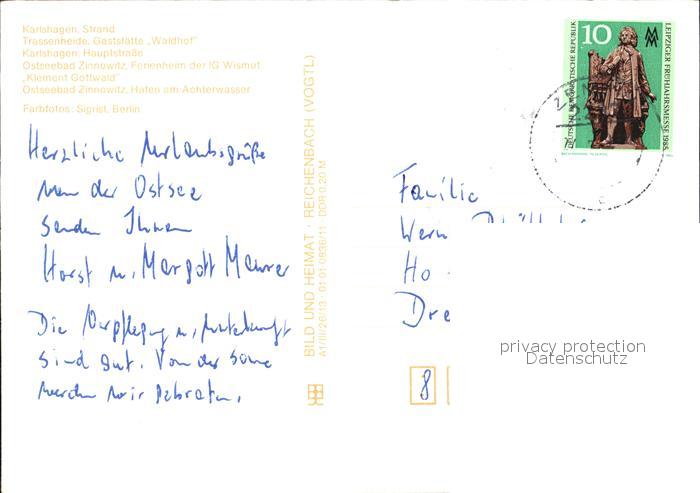 Karlshagen, Strand
Trassenheide, Gaststätte „Waldhof"
Karlshagen, Hauptstraße
Ostseebad Zinnowitz, Ferienheim der IG Wismut
„Klement Gottwald"
Ostseebad Zinnowitz, Hafen am Achterwasser
Farbfotos: Sigrist, Berlin
Herzliche Urlaubsgrüße
von der Ostsee
senden Ihnen
Horst u. Margott Maurer
Die Verpflegung u. Unterkunft
sind gut. Von der Sonne
werden wir gebraten.
BILD UND HEIMAT · REICHENBACH (VOGTL)
A1/III/26/13 01 01 0936/11 DDR 0,20 M
10
DEUTSCHE DEMOKRATISCHE REPUBLIK
LEIPZIGER FRÜHJAHRSMESSE 1985
Familie
Wern
Ho
Dre
8
privacy protection
Datenschutz